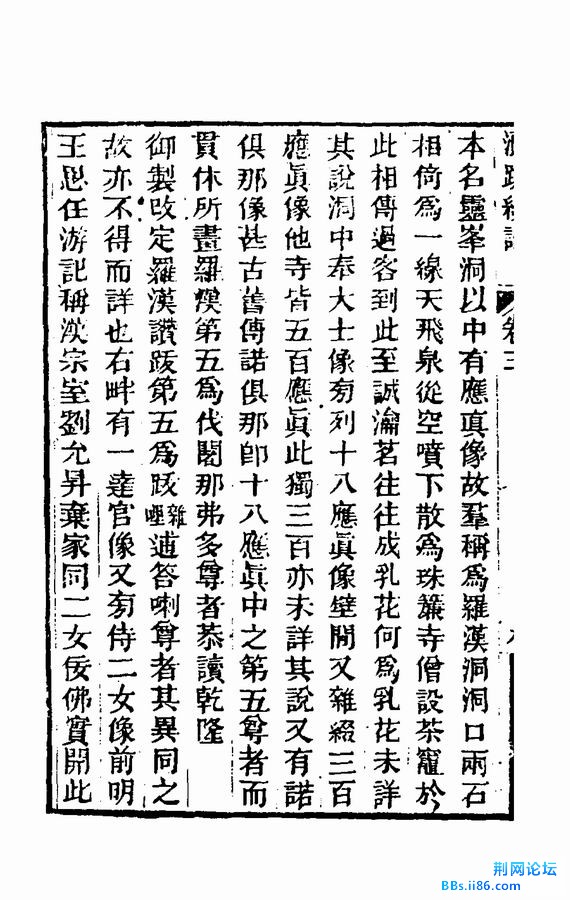 浪跡續談 卷三
本名靈峯洞以中有應真像故羣稱爲羅漢洞洞口兩石
相倚爲一線天飛泉從空噴下散爲珠簾寺僧設茶竈於
此相傳過客到此至誠瀹茗往往成乳花何爲乳花未詳
其說洞中奉大士像旁列十八應眞像壁間又雜綴三百
應眞像他寺皆五百應眞此獨三百亦未詳其說又有諾
俱那像甚古舊傳諾俱那卽十八應眞中之第五尊者而
貫休所畫羅漢第五爲伐闍那弗多尊者恭讀乾隆
御製改定羅漢讚跋第五爲跋雜哩逋答喇尊者其異同之
故亦不得而詳也右畔有一達官像又旁侍二女像前明
王思任游記稱漢宗室劉允昇棄家同二女佞佛實開此
荆网论坛
BBs.ii86.com